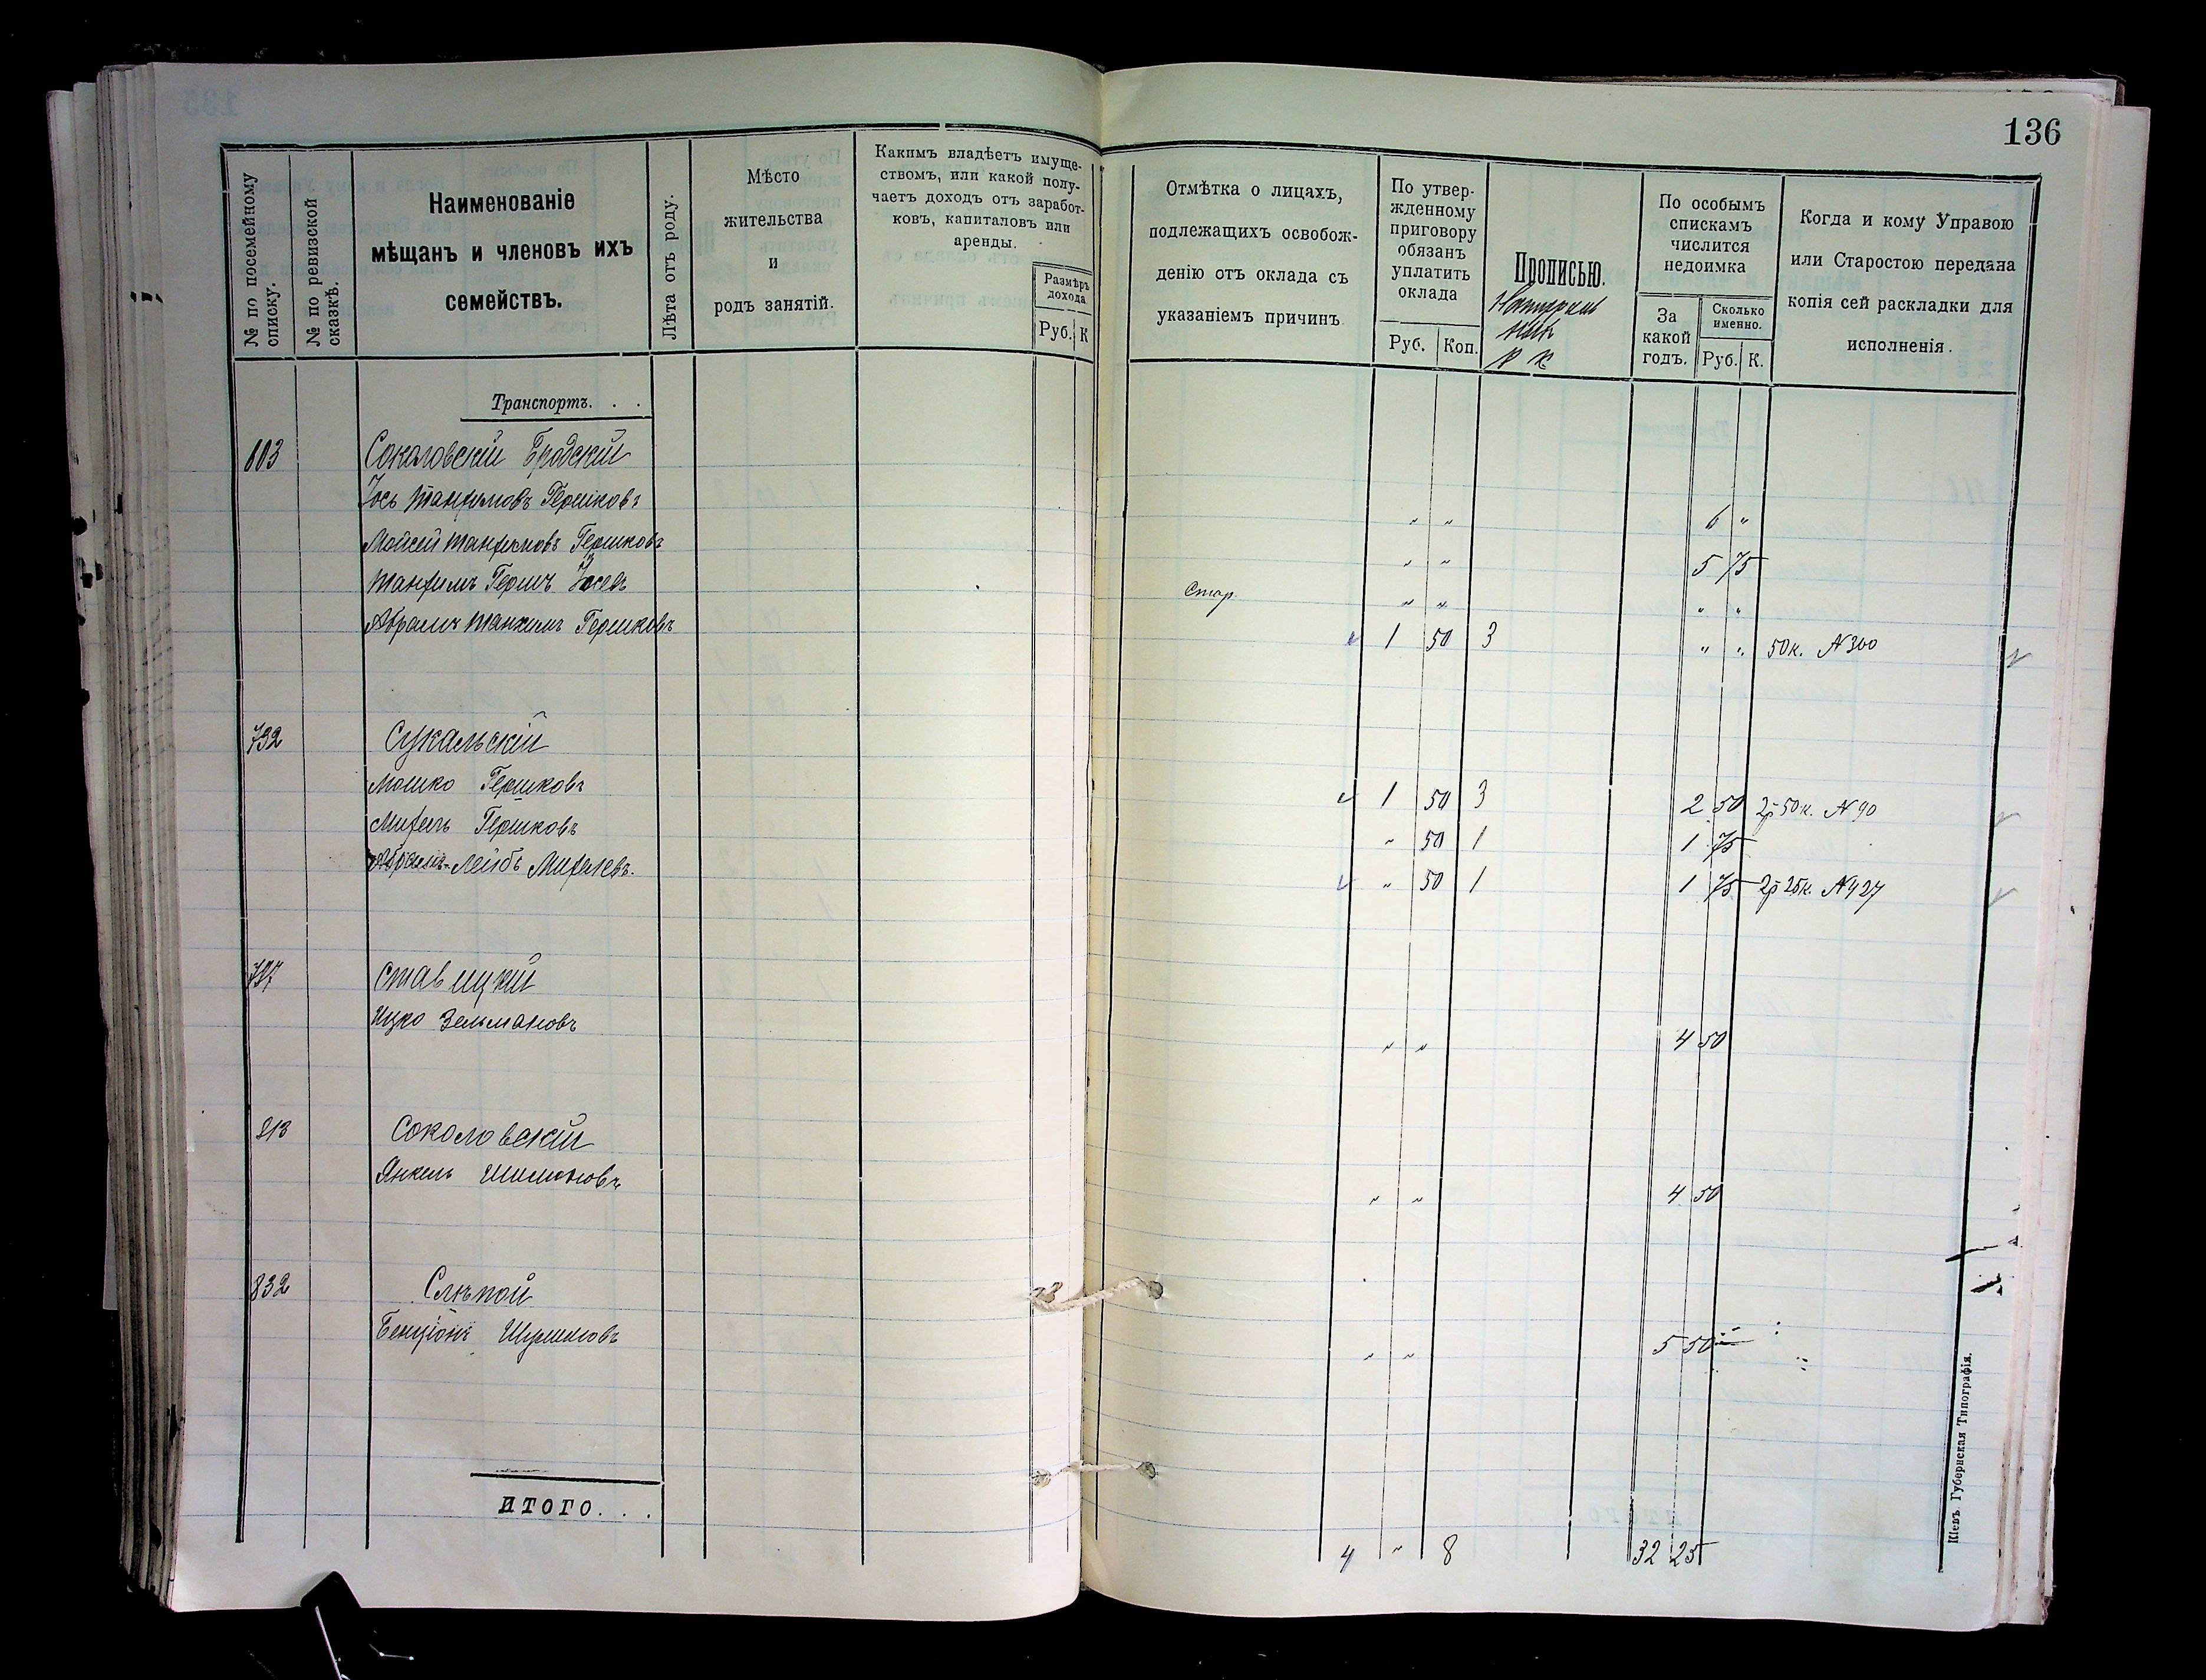 136
№ по посемейному списку.
№ по ревизской сказкѣ.
Наименованіе
мѣщанъ и членовъ ихъ
семействъ.
Лѣта отъ роду.
Мѣсто
жительства
и
родъ занятій.
Какимъ владѣетъ имуще-
ствомъ, или какой полу-
чаетъ доходъ отъ заработ-
ковъ, капиталовъ или
аренды.
Размѣръ
дохода
Руб. К
Отмѣтка о лицахъ,
подлежащихъ освобож-
денію отъ оклада съ
указаніемъ причинъ
По утвер-
жденному
приговору
обязанъ
уплатить
оклада
Руб. Коп.
Прописью.
р к
По особымъ
спискамъ
числится
недоимка
За
какой
годъ.
Сколько
именно.
Руб. К.
Когда и кому Управою
или Старостою передана
копія сей раскладки для
исполненія.
Транспортъ. . .
603 Соколовскій Бродскій
Іось Танхумовъ Гершковъ " " 6 "
Мойсей Танхумовъ Гершковъ " " 5 75
Танхумъ Гершъ Іосевъ Стар. " " " "
Абрамъ Танхумъ Гершковъ 1 50 3 " " 50к. N 300
732 Сукальскій
Мошко Гершковъ 1 50 3 2 50 2р 50к. N 90
Михель Гершковъ " 50 1 1 75
Абрамъ-Лейбъ Михелевъ. " 50 1 1 75 2р 25к. N 427
737 Ставицкій
Ицко Зельмановъ " " 4 50
813 Соколовскій
Янкель Шимоновъ " " 4 50
832 Слѣпой
Бенціонъ " " 5 50
ИТОГО. . .
4 " 8 32 25
Кіевъ Губернская Типографія.